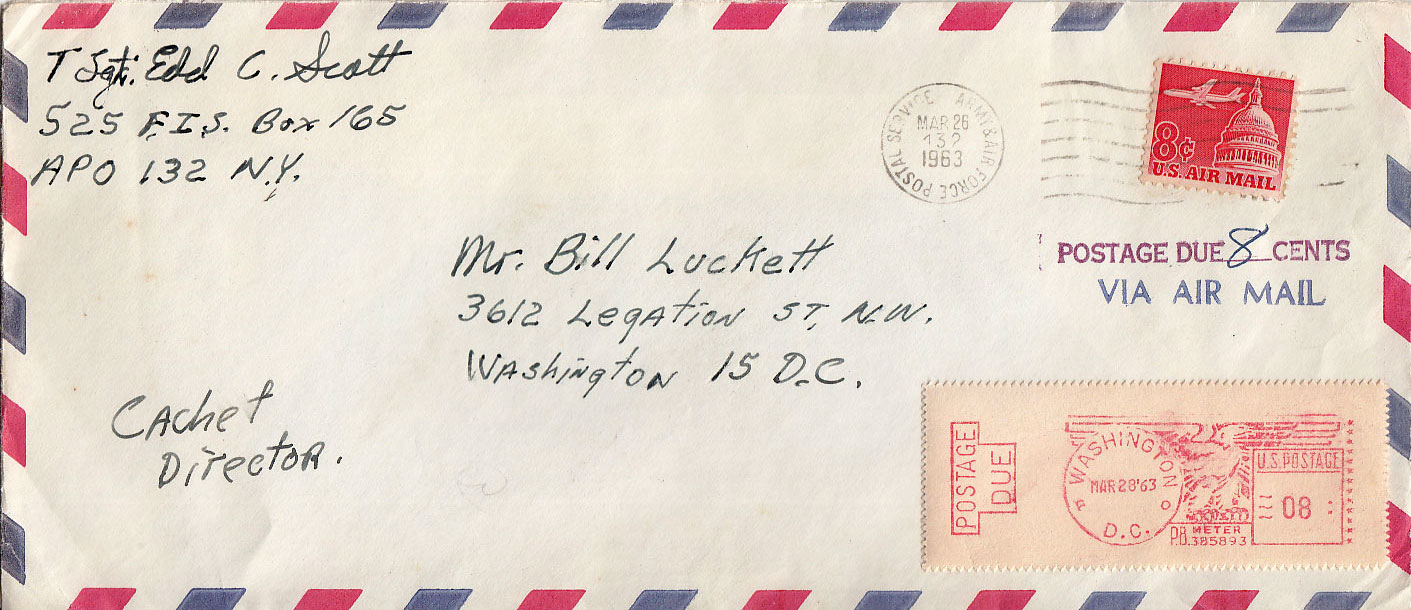 T Sgt. Edd C. Scott
525 F.I.S. Box 165
APO 132 N.Y.
POSTAL SERVICE ARMY & AIR FORCE
MAR 26
132
1963
8¢
U.S. AIR MAIL
POSTAGE DUE 8 CENTS
VIA AIR MAIL
Mr. Bill Luckett
3612 Legation ST, N.W.
Washington 15 D.C.
Cachet
Director.
POSTAGE
DUE
WASHINGTON
MAR 28 '63
P O
D.C.
U.S. POSTAGE
08
P.B. METER
385893